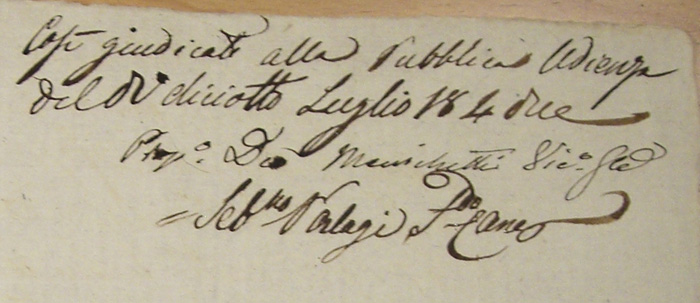 Così giudicato alla Pubblica Udienza
del dì diciotto Luglio 184 due
Prop.º Menichetti Vic.º Gle
= Seb.no Valagi